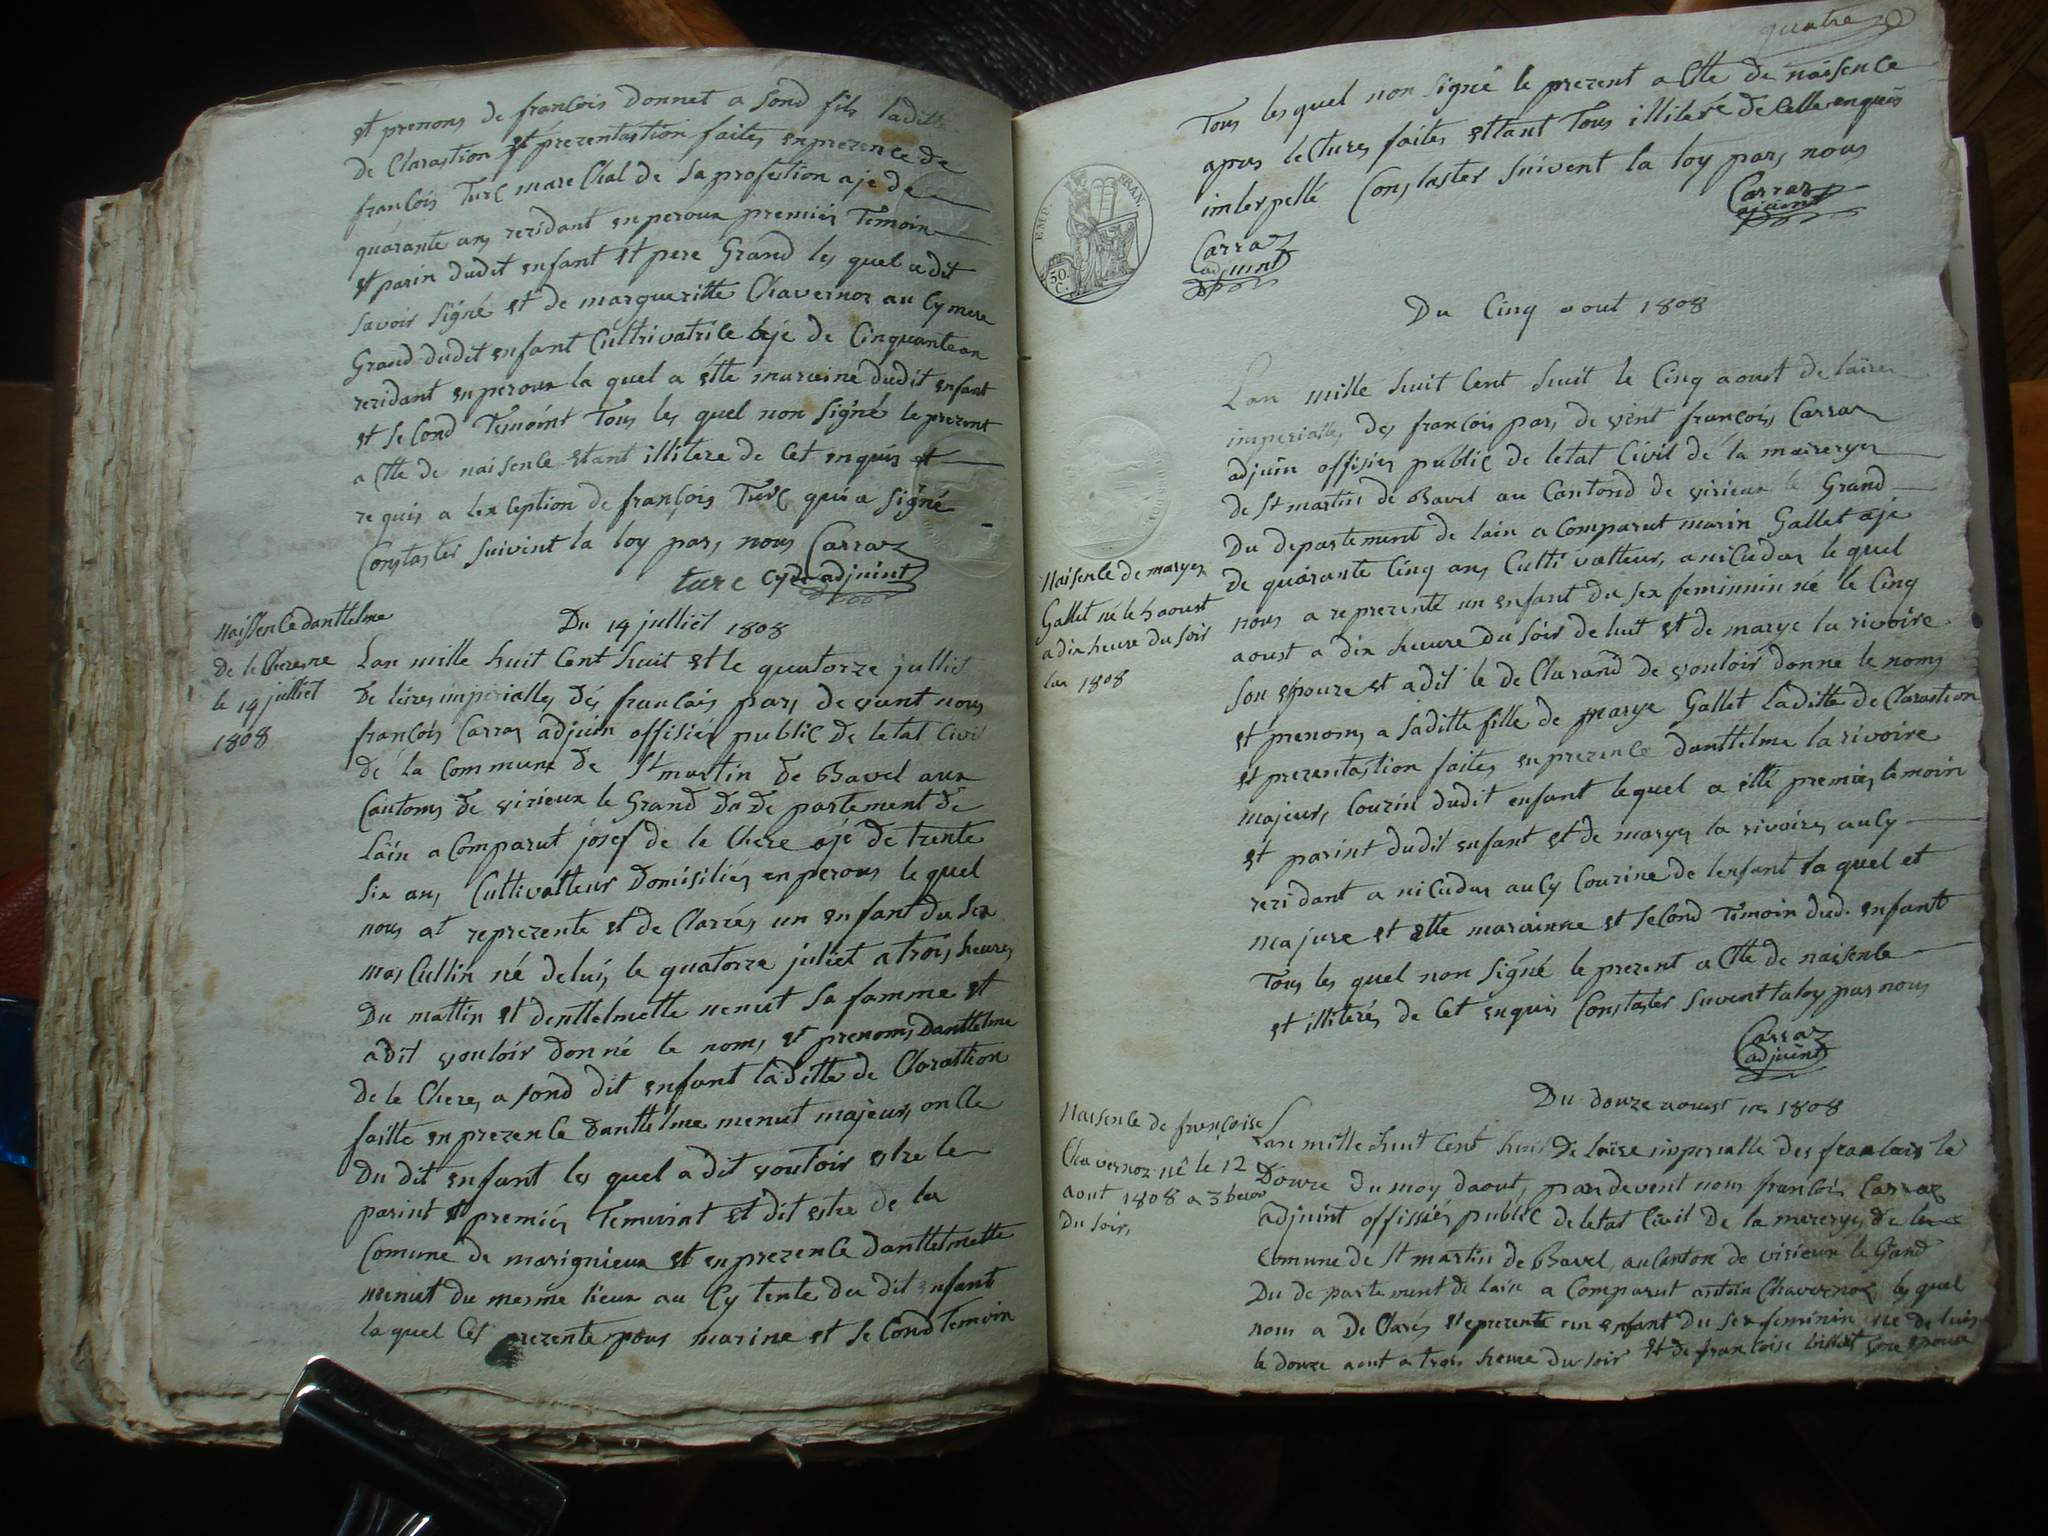 et prenons de francois donnet a sond fils laditte
de Clarastion et prezentastion faites enprezence de
francois Turc marechal de sa profestion aje de
quarante ans rezidant enperoux premier Temoin
et parin dudit enfant et pere Grand les quel a dit
savoir signé et de margueritte Chavernoz au Cy mere
Grand dudit enfant Cultrivatrice aje de Cinquante an
rezidant enperoux la quel a ette maraine dudit enfant
et second Temoint Tous les quel non signé le prezent
a Ctte de naisence etant illitere de Cet enquis et
requis a lexception de francois Turc qui a signé
Constater suivent la loy par nous Carraz
turc adjuint
naissence danttelme
de le Chere ne
le 14 julliet
1808
Du 14 julliet 1808
Lan mille huit Cent huit et le quatorze julliet
de leres imperialles des francais pars devant nous
francois Carraz adjuin offisier public de letat Civil
de la Commune de St martin de Bavel aux
Cantoms de virieux le Grand Du Departement de
Lain a Comparut josef de le Chere ajé de trente
six ans Cultivatteur Domisiliés en peroux le quel
nous at reprezente et de Clarés un enfant du sex
masCullin né de lui le quatorze juliet a trois heures
Du mattin et denttelmette menut sa famme et
a dit vouloir donné le noms et prenoms danttelme
de le Chere a sond dit enfant laditte de Clarattion
faitte en prezence danttelme menut majeur onCle
Du dit enfant les quel a dit vouloir etre le
parint et premier Temoint et dit estre de la
Comune de marignieux et en prezence danttelmette
menut du mesme lieux au Cy tente du dit enfant
la quel Cet prezente pour marine et second Temoin
quatre
Tous les quel non signé le prezent a Ctte de naisence
apres lectures faites ettant Tous illiteré de Celle enquis
interpellé Constaster suivent la loy pars nous
Carraz
adjuint
Carraz
adjuint
EMP. FRAN.
50.
C.
Du Cinq aout 1808
Lan mille huit Cent huit le Cinq aoust de laires
imperialles des francois pars de vent francois Carraz
adjuin offisier public de letat Civil de la maireryes
de St martin de Bavel au Cantond de virieux le Grand
Du departement de lain a Comparut marin Gallet ajé
de quarante Cinq ans Cultivatteur, a niCudas le quel
nous a reprezenté un enfant du sex feminnin né le Cinq
aoust a dix heure du soir de luit et de marye la rivoire
son epouze et a dit le de Clarand de vouloir donne le noms
et prenoms a saditte fille de marye Gallet Laditte de Clarastion
et prezentastion faites en prezence danttelme la rivoire
majeur, Couzin dudit enfant lequel a etté premier temoin
et parint dudit enfant et de maryes la rivoires au Cy
rezidant a niCudas au Cy Couzine de lenfant la quel et
majure et ette marainne et second Témoin dud. enfant
Tous les quel non signé le prezent a Ctte de naisence
et illiterés de Cet enquis Constaster suvent la loy par nous
Carraz
adjuint
naisence de maryes
Gallet né le 5 aoust
a dix heure du soir
lan 1808
Du douze aoust 1808
naisence de françoise
Chavernoz né le 12
aout 1808 a 3 heur
Du soir,
Lan mille huit Cent huit de laire imperialle des francais le
Douze du moy daout, pardevent nous francois Carraz
adjuint offissier public de letat Civil de la mererye de la
Comune de St martin de Bavel, au Canton de virieux le Grand
Du departement de lain a Comparut antoin Chavernoz les quel
nous a de Clarés et reprezente un enfant du sex feminin né de luis
le douze aout a trois heure du soir et de francoise son epouze